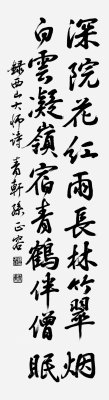 深院花紅雨長林竹翠烟
白雲凝嶺宿青鶴伴僧眠
録西山大師詩 青軒孫正容